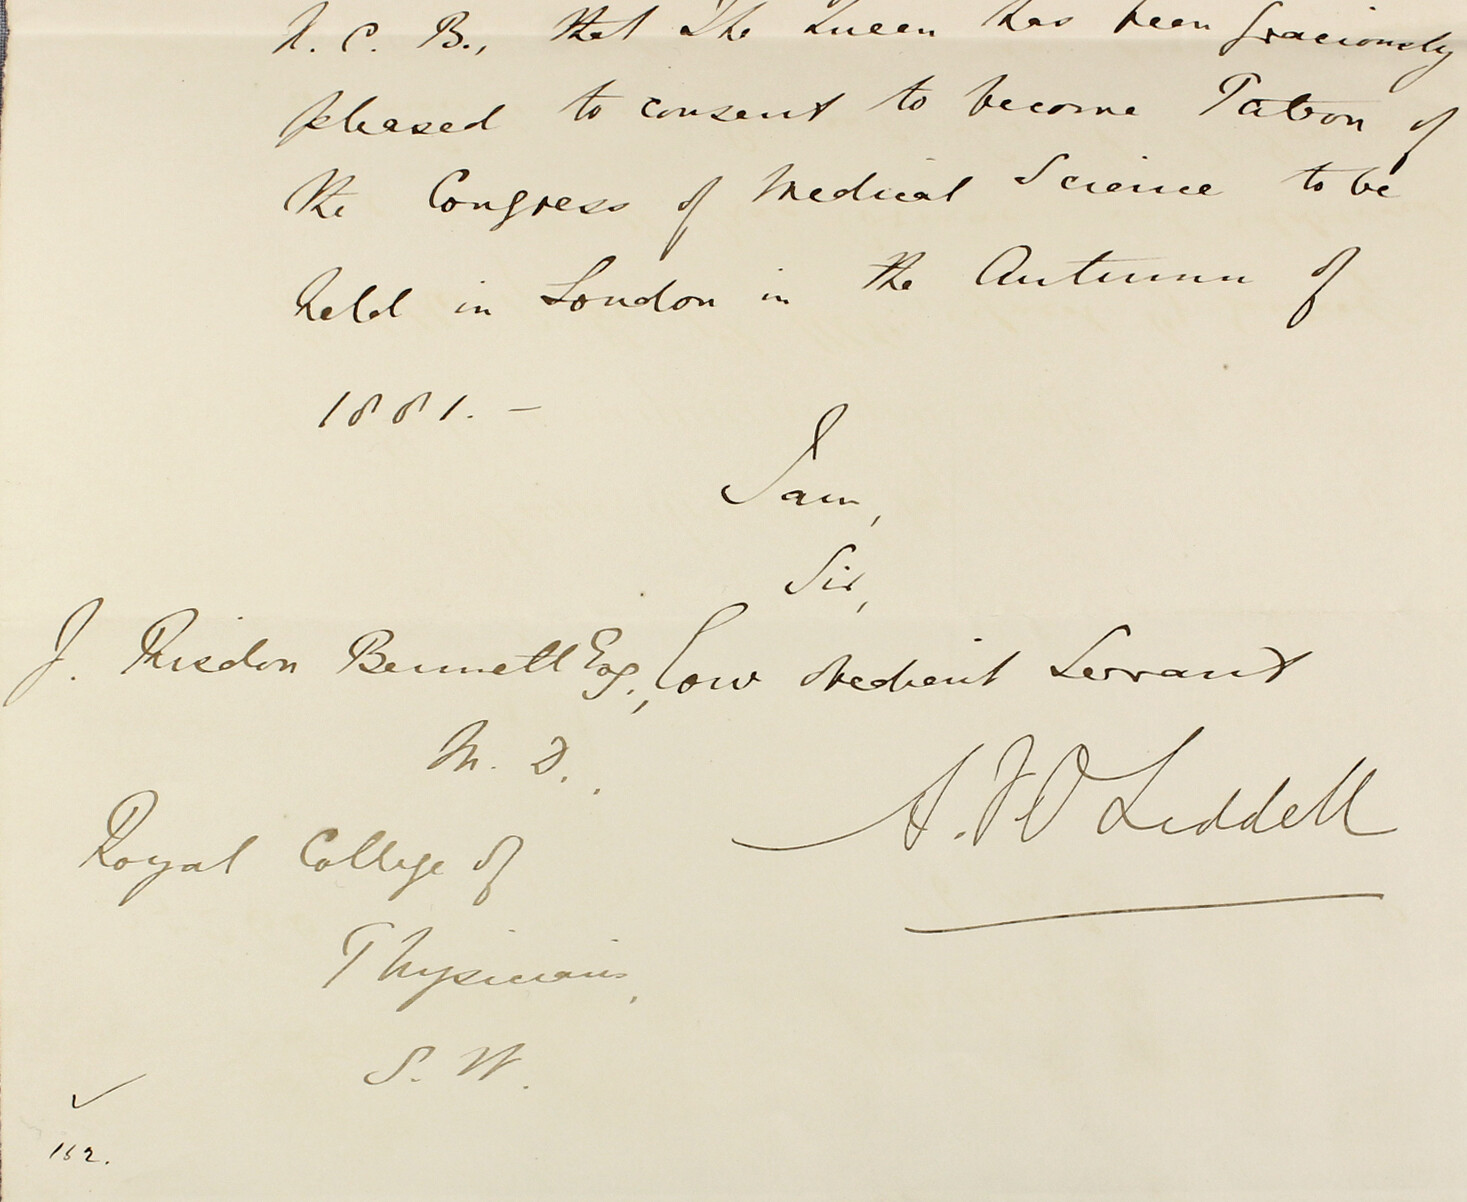 K. C. B., that The Queen has been graciously
pleased to consent to become Patron of
the Congress of Medical Science to be
held in London in the Autumn of
1881. —
I am,
Sir,
J. Risdon Bennett Esq., Your obedient Servant
M. D.,
A. F. O. Liddell
Royal College of
Physicians,
S. W.
162.